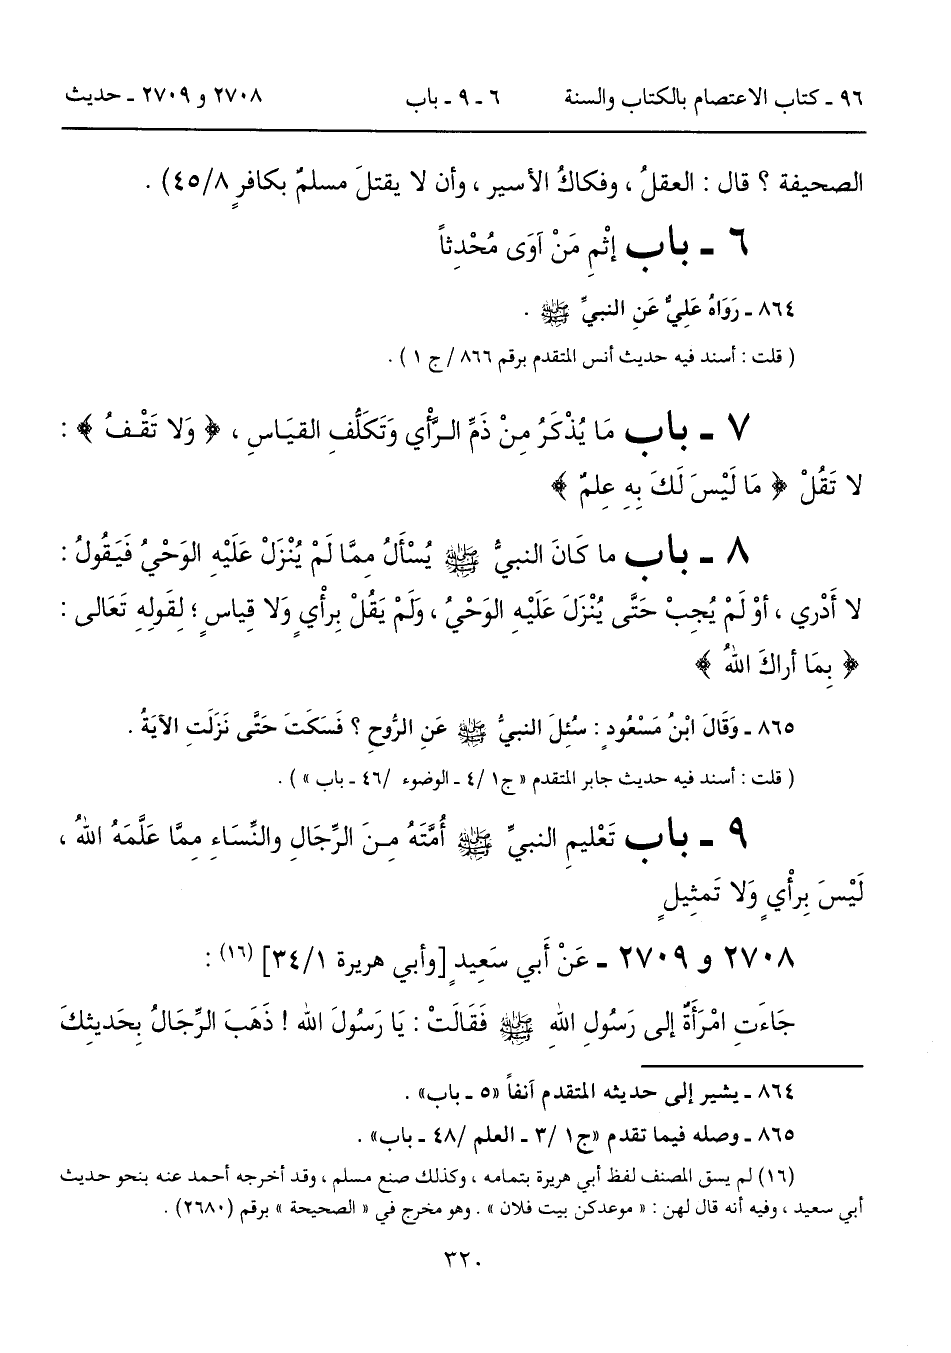 ٩٦ ـ كتاب الاعتصام بالكتاب والسنة ٦ ـ ٩ ـ باب ٢٧٠٨ و ٢٧٠٩ ـ حديث
الصحيفة ؟ قال : العقلُ ، وفكاكُ الأسير ، وأن لا يقتلَ مسلمٌ بكافرٍ ٤٥/٨) .
٦ ـ باب إثْمِ مَنْ آوَى مُحْدِثاً
٨٦٤ ـ رَوَاهُ عَلِيٌّ عَنِ النبيِّ ﷺ .
( قلت : أسند فيه حديث أنس المتقدم برقم ٨٦٦ / ج ١ ) .
٧ ـ باب مَا يُذْكَرُ مِنْ ذَمِّ الرَّأْي وَتَكَلُّفِ القيَاسِ ، ﴿ وَلا تَقْفُ ﴾ :
لا تَقُلْ ﴿ مَا لَيْسَ لَكَ بِهِ عِلمٌ ﴾
٨ ـ باب ما كَانَ النبيُّ ﷺ يُسْأَلُ مِمَّا لَمْ يُنْزَلْ عَلَيْهِ الوَحْيُ فَيَقُولُ :
لا أَدْري ، أوْ لَمْ يُجِبْ حَتَّى يُنْزَلَ عَلَيْهِ الوَحْيُ ، ولَمْ يَقُلْ برأْيٍ وَلا قِياسٍ ؛ لِقَولِهِ تَعَالى :
﴿ بِمَا أراكَ اللهُ ﴾
٨٦٥ ـ وَقَالَ ابْنُ مَسْعُودٍ : سُئِلَ النبيُّ ﷺ عَنِ الرُّوحِ ؟ فَسَكَتَ حَتَّى نَزَلَتِ الآيَةُ .
( قلت : أسند فيه حديث جابر المتقدم « ج١ /٤ ـ الوضوء /٤٦ ـ باب » ) .
٩ ـ باب تَعْليمِ النبيِّ ﷺ أُمَّتَهُ مِنَ الرِّجَالِ والنِّسَاءِ مِمَّا عَلَّمَهُ اللهُ ،
لَيْسَ بِرأْيٍ وَلا تَمثِيلٍ
٢٧٠٨ و ٢٧٠٩ ـ عَنْ أَبي سَعِيدٍ [وأبي هريرة ٣٤/١] (١٦) :
جَاءَتِ امْرَأَةٌ إلى رَسُولِ اللهِ ﷺ فَقَالَتْ : يَا رَسُولَ الله ! ذَهَبَ الرِّجَالُ بِحَديثِكَ
٨٦٤ ـ يشير إلى حديثه المتقدم آنفاً «٥ ـ باب» .
٨٦٥ ـ وصله فيما تقدم «ج١ /٣ ـ العلم /٤٨ ـ باب» .
(١٦) لم يسق المصنف لفظ أبي هريرة بتمامه ، وكذلك صنع مسلم ، وقد أخرجه أحمد عنه بنحو حديث
أبي سعيد ، وفيه أنه قال لهن : « موعدكن بيت فلان » . وهو مخرج في « الصحيحة » برقم (٢٦٨٠) .
٣٢٠